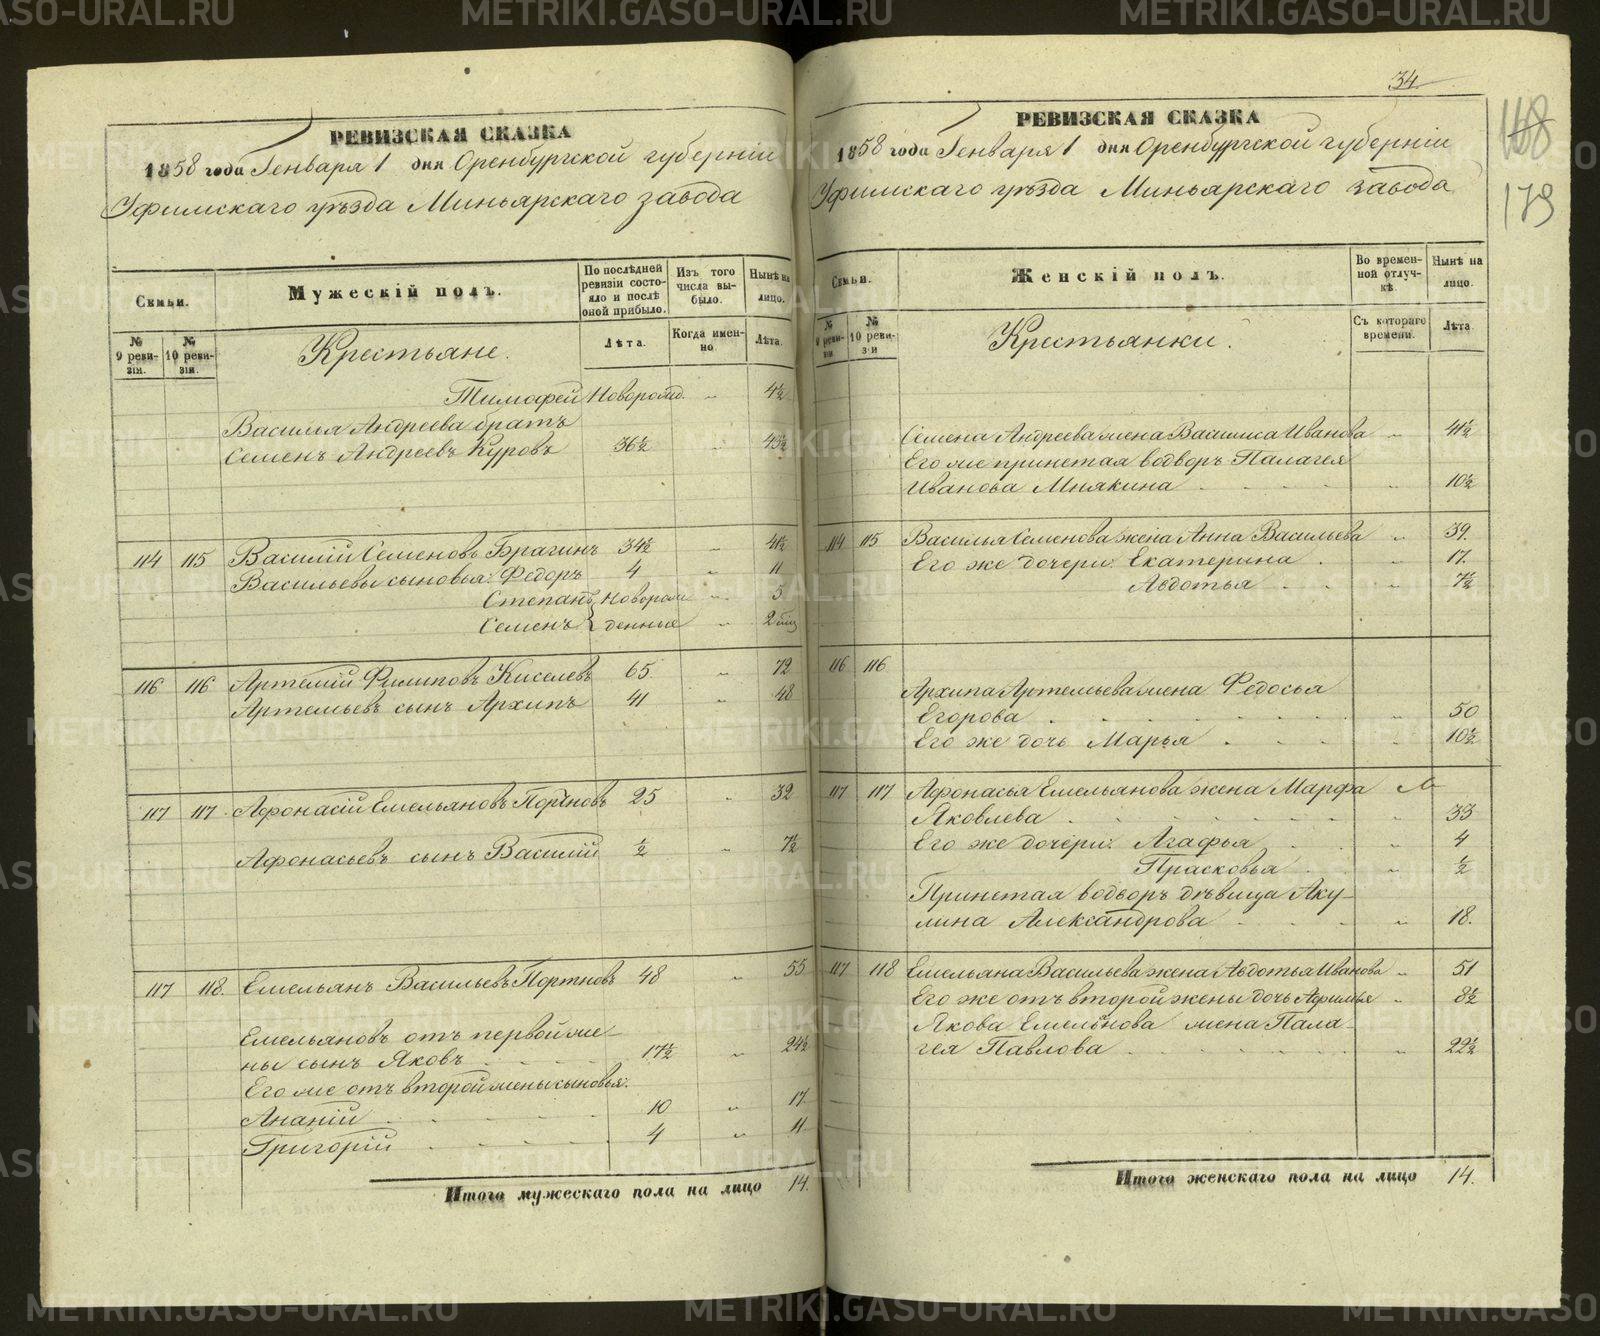 РЕВИЗСКАЯ СКАЗКА
1858 года Генваря 1 дня Оренбургской губерніи
Уфимскаго уѣзда Миньярскаго завода
Семьи.
Мужескій полъ.
По послѣдней ревизіи состояло и послѣ оной прибыло.
Изъ того числа выбыло.
Нынѣ на лицо.
№ 9 ревизіи.
№ 10 ревизіи.
Крестьяне.
Лѣта.
Когда именно
Лѣта.
Тимофей Новорожд. „ 4½
Василья Андреева братъ
Семенъ Андреевъ Куровъ 36½ „ 43½
114 115 Василій Семеновъ Брагинъ 34½ „ 41½
Васильевы сыновья: Федоръ 4 „ 11
Степанъ Новорож „ 5
Семенъ денные „ 2
116 116 Артемій Филиповъ Киселевъ 65 „ 72
Артемьевъ сынъ Архипъ 41 „ 48
117 117 Афонасій Емельяновъ Портновъ 25 „ 32
Афонасьевъ сынъ Василій ½ „ 7½
117 118. Емельянъ Васильевъ Портновъ 48 „ 55
Емельяновъ отъ первой же-
ны сынъ Яковъ 17½ „ 24½
Его же отъ второй жены сыновья:
Ананій 10 „ 17
Григорій 4 „ 11
Итого мужескаго пола на лицо 14.
34
168
179
РЕВИЗСКАЯ СКАЗКА
1858 года Генваря 1 дня Оренбургской губерніи
Уфимскаго уѣзда Миньярскаго завода
Семьи.
Женскій полъ.
Во временной отлучкѣ.
Нынѣ на лицо.
№ 9 ревизіи
№ 10 ревизіи
Крестьянки.
Съ котораго времени.
Лѣта.
Семена Андреева жена Василиса Иванова „ 41½
Его же принетая водворъ Палагея
Иванова Мнякина „ 10½
114 115 Василья Семенова жена Анна Васильева „ 39.
Его же дочери: Екатерина „ 17.
Авдотья „ 7½
116 116
Архипа Артемьева жена Федосья
Егорова „ 50
Его же дочь Марья „ 10½
117 117 Афонасья Емельянова жена Марфа
Яковлева „ 33
Его же дочери: Агафья „ 4
Прасковья „ ½
Принетая водворъ дѣвица Аку-
лина Александрова „ 18.
117 118 Емельяна Васильева жена Авдотья Иванова „ 51
Его же отъ второй жены дочь Афимья „ 8½
Якова Емельянова жена Пала-
гея Павлова „ 22½
Итого женскаго пола на лицо 14.
METRIKI.GASO-URAL.RU